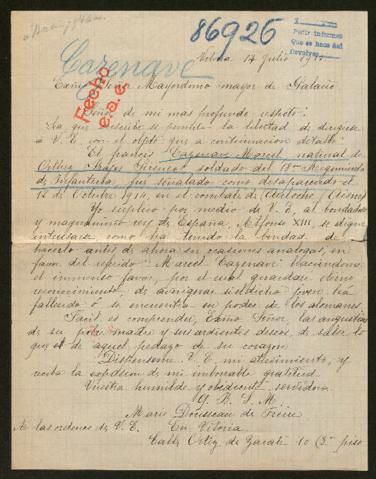 86926
Pedir informes
que se hace del
Cazenave
Fecho
Vitoria 17 Julio 191
Exmo Señor Mayordomo mayor de Palacio
Señor de mi mas profundo respeto:
La que suscribe se permite la libertad de dirigirse
a V. E. con el objeto que a continuacion detallo:
El francés Cazenave Marcel, natural de
soldado del 18 Regimiento
de Infanteria fue señalado como desaparecido el
12 de Octubre 1914, en el combate de (Aisne)
Yo suplico por medio de V. E. al bondadoso
y magnanimo rey de España, Alfonso XIII, se digne
interesarse como ha tenido la bondad de
hacerlo antes de ahora en ocasiones analogas, en
favor del referido "Marcel Cazenave" haciendome
el inmenso favor, por el cual guardare eterno
reconocimiento, de averiguar si dicho joven ha
fallecido ó se encuentra en poder de los alemanes.
Facil es comprender, Exmo Señor, las angustias
de su pobre madre y sus ardientes deseos de saber lo
que es de aquel pedazo de su corazon.
Dispenseme V. E. mi atrevimiento, y
reciba la expresion de mi imborrable gratitud.
Vuestra humilde y obediente servidora
Q. B. S. M.
Marie Dousseau de Freire
A las ordenes de V. E. En Vitoria
Calle Ortiz de Zarate 10 (3º piso